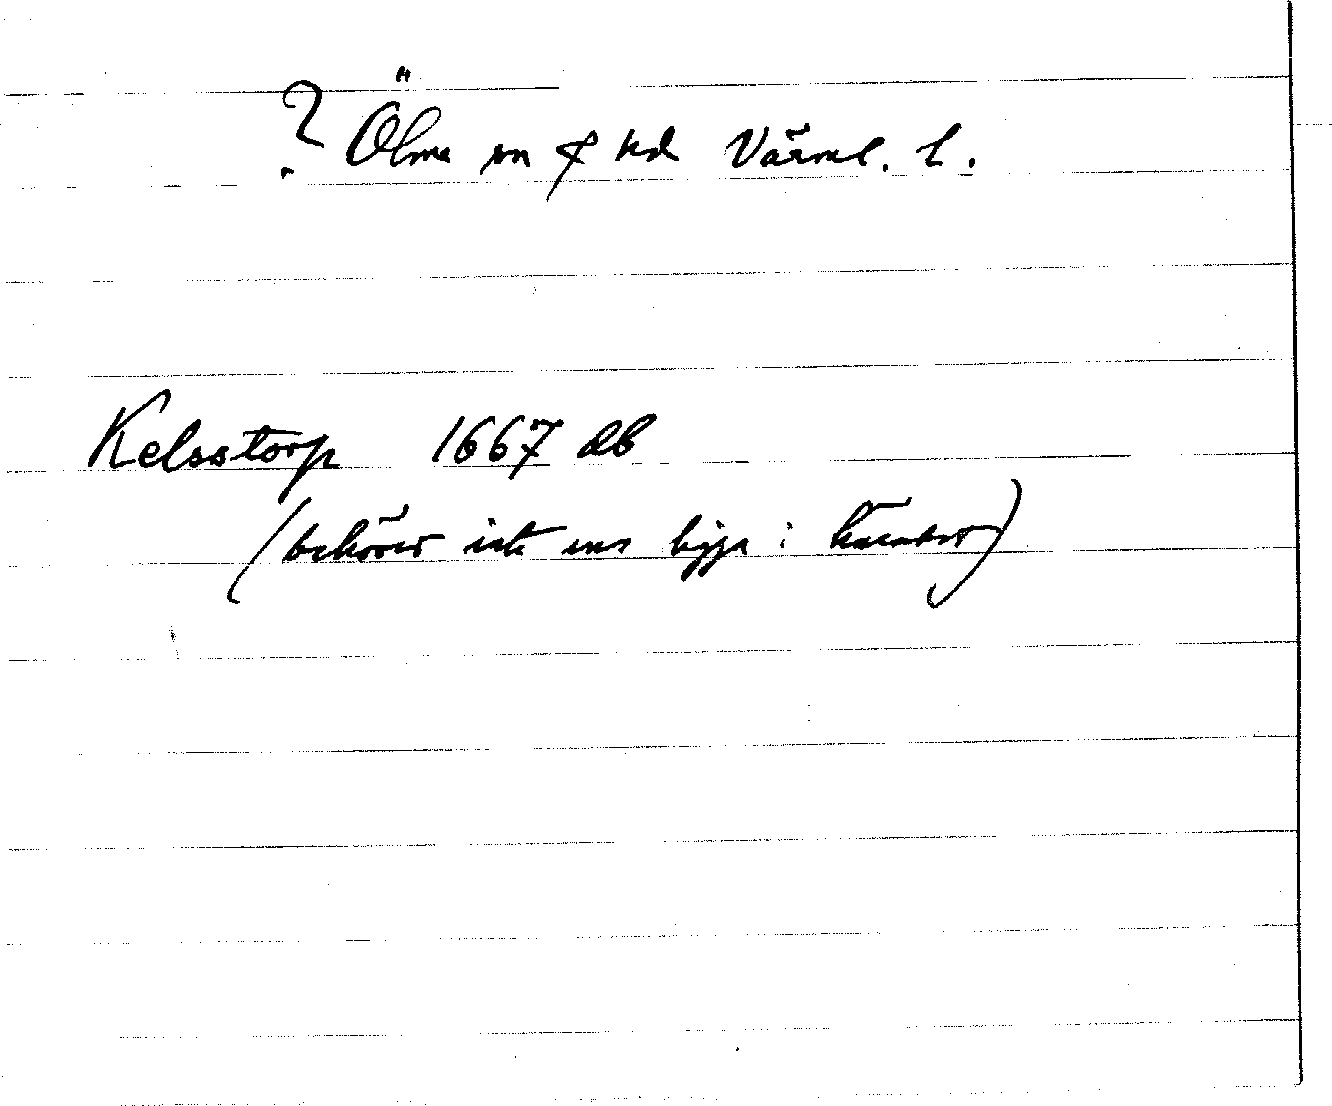 ? Ölme sn o hd Värml. l.
Kelsstorp 1667 db
(behöver inte ens ligga i häradet)